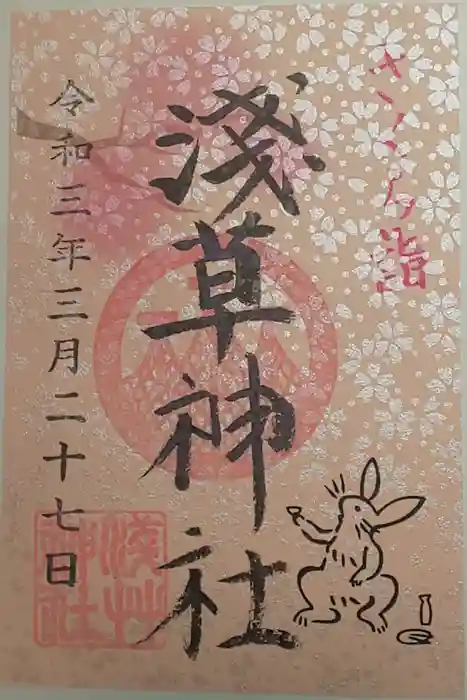 さくら詣
淺草神社
令和三年三月二十七日
淺草
神社